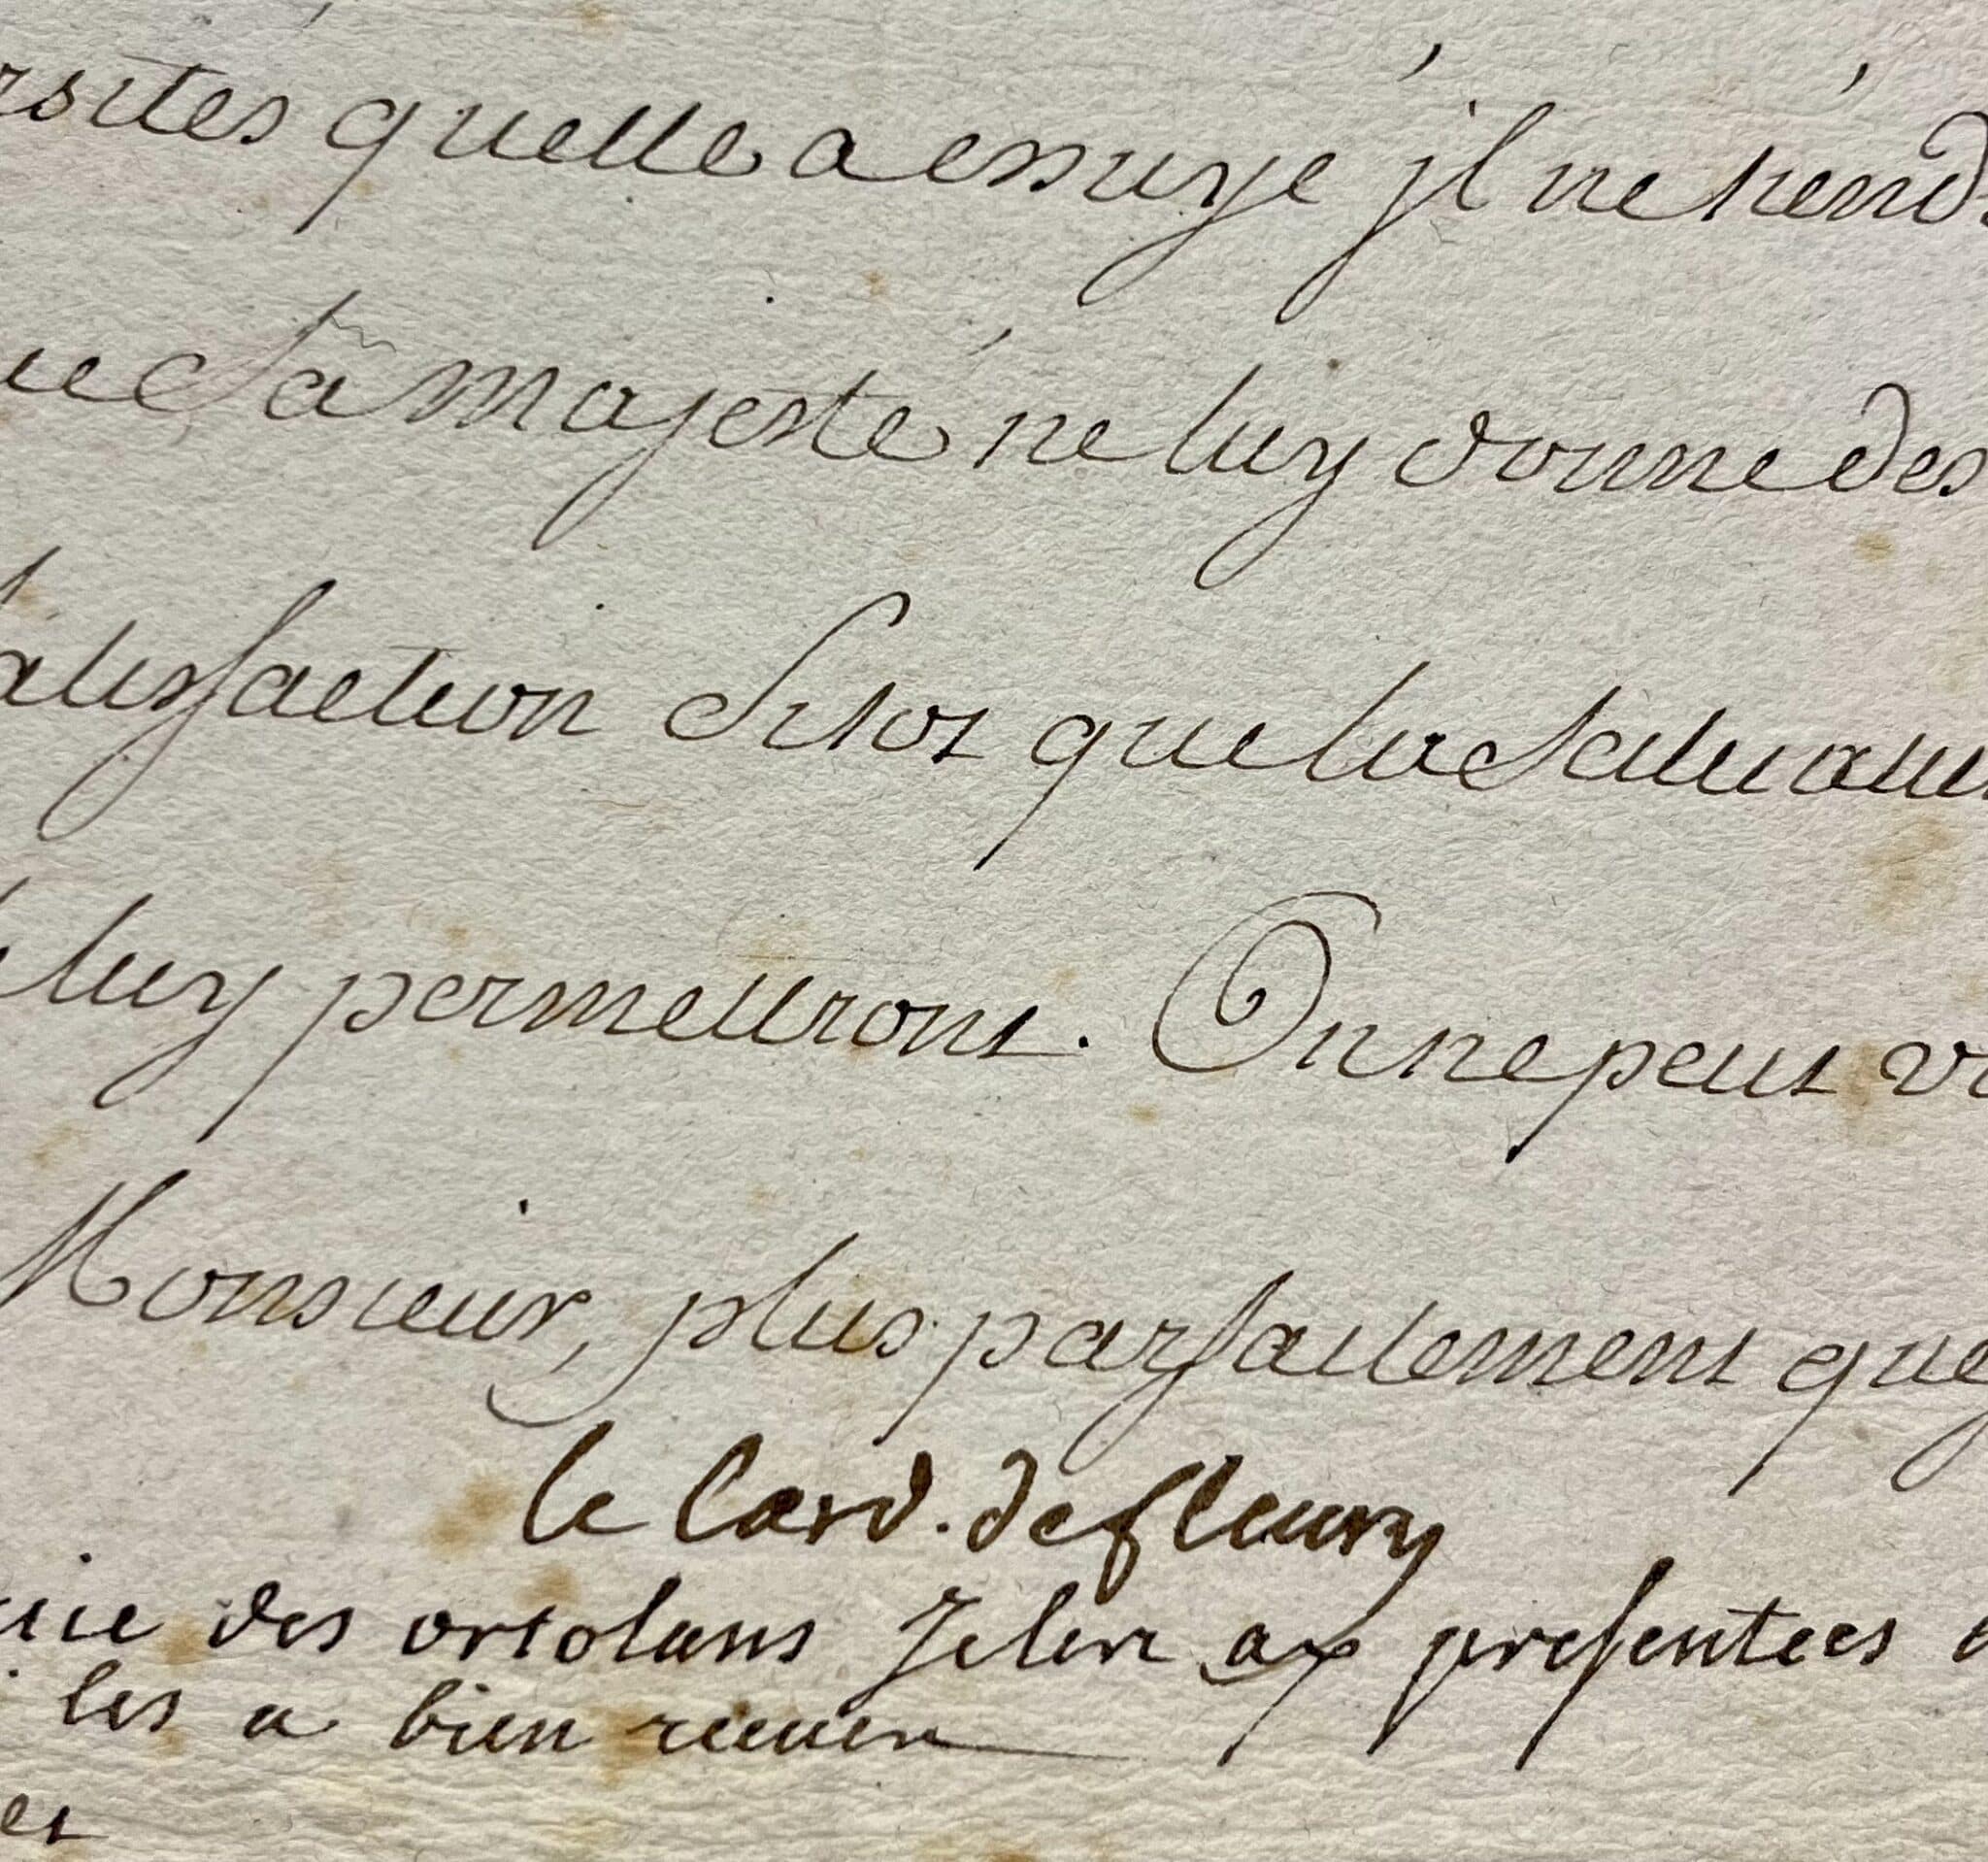 rsités quelle a essuyé jl ne tiend
ue Sa majesté ne luy donne des
atisfaction Sitot que la Scituation
luy permettront. On ne peut v
Monsieur, plus parfaitement que
le Card. de fleury
des ortolans Je les ay presentees
les a bien receues
et